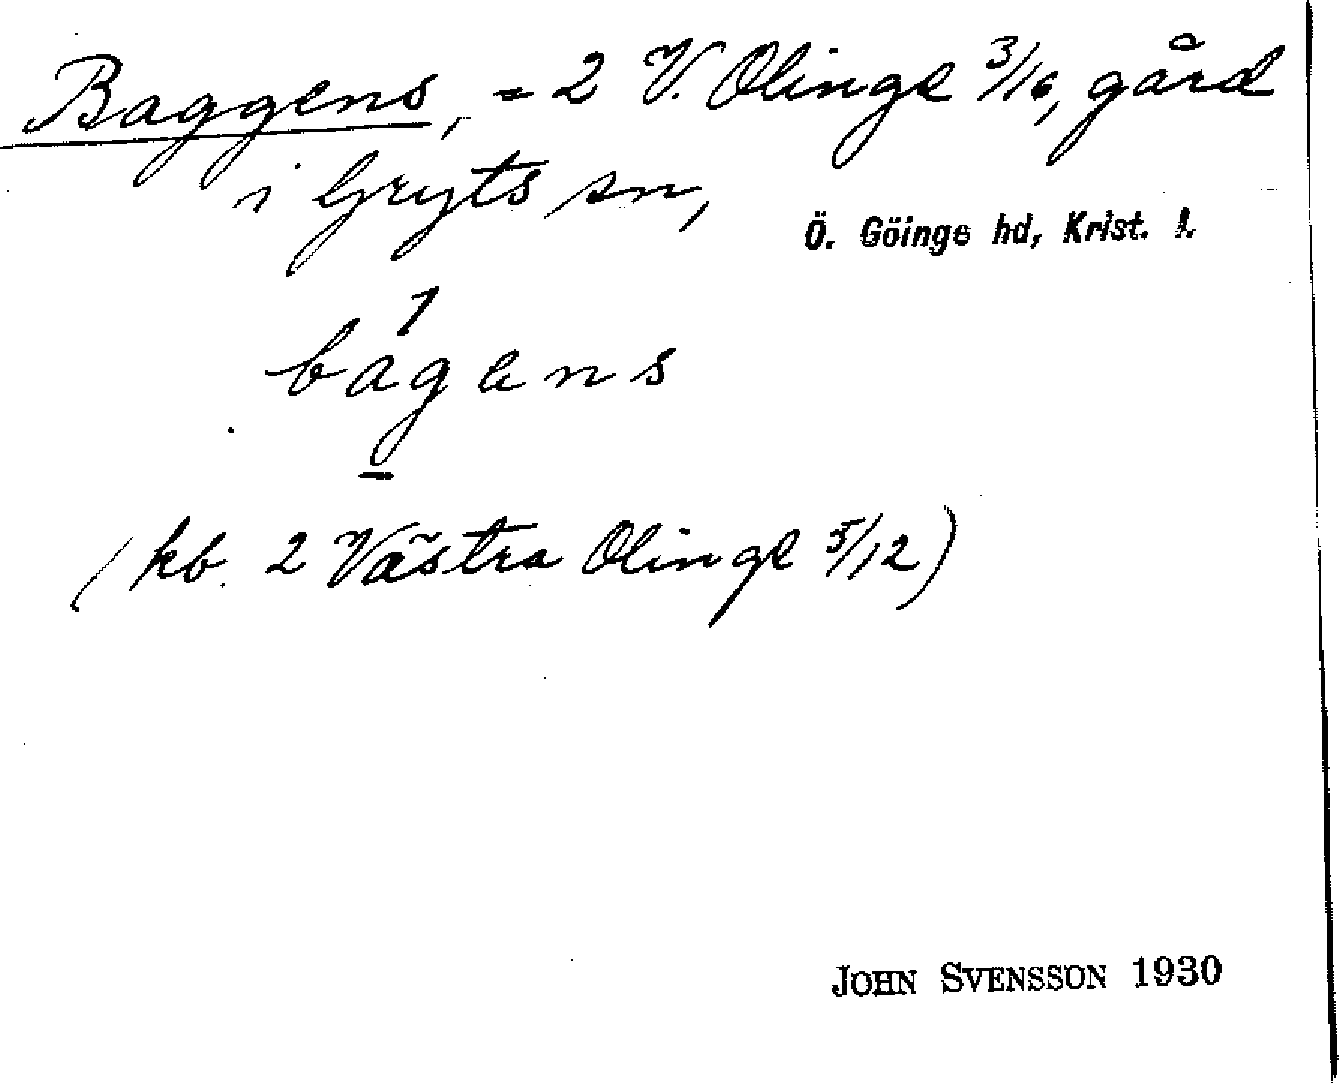 Baggens, = 2 V. Olinge 3/16, gård
i Gryts sn,
Ö. Göinge hd, Krist. l.
bagens
(kb. 2 Västra Olinge 5/12)
JOHN SVENSSON 1930